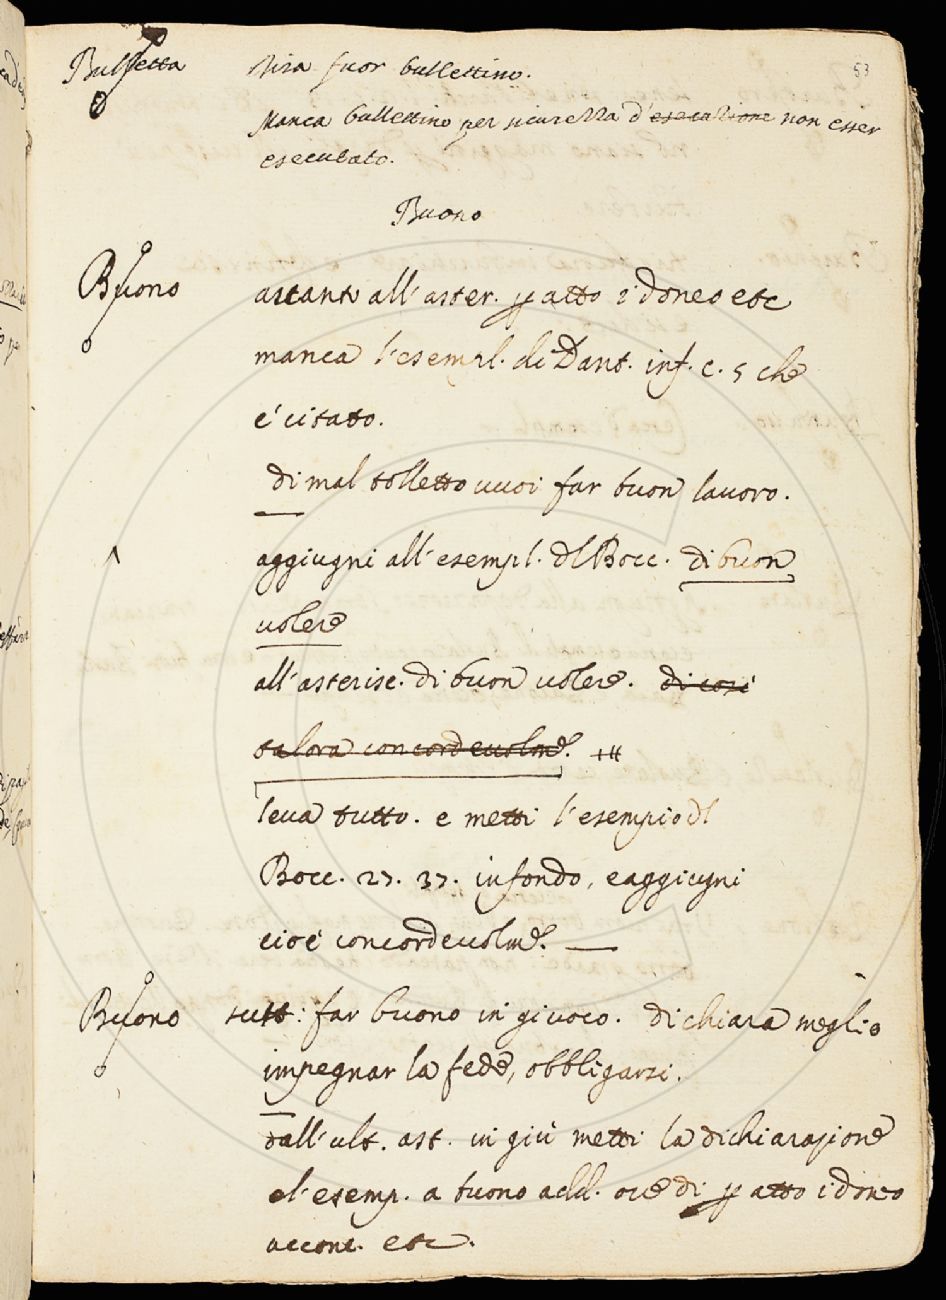 53
Bulletta Tira fuor bullettino.
Manca bullettino per sicurezza d'esecuzione non esser
esecutato.
Buono
Buono avanti all'aster. p atto idoneo etc
manca l'esempl. di Dant. inf. c. 5 che
è citato.
di mal tolletto vuoi far buon lavoro.
aggiugni all'esempl. dl Bocc. di buon
volere
all'asterisc. di buon volere. di cosi
talora concordevolme. ++
leva tutto. e metti l'esempio dl
Bocc. 27. 37. in fondo, e aggiugni
cioè concordevolme.
Buono sust: far buono in giuoco. dichiara meglio
impegnar la fede, obbligarsi.
dall'ult. ast. in giù metti la dichiarazione
e l'esemp. a buono add. ove di p atto idoneo
accone. etc.